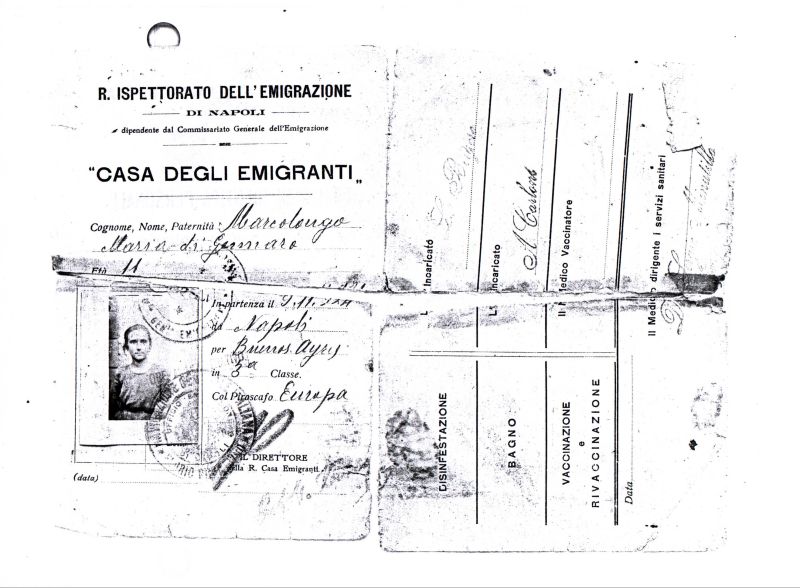 R. ISPETTORATO DELL'EMIGRAZIONE
DI NAPOLI
dipendente dal Commissariato Generale dell'Emigrazione
"CASA DEGLI EMIGRANTI„
Cognome, Nome, Paternità: Marcolongo
Maria di Gennaro
Età 11
In partenza il 9.11.
da Napoli
per Buenos Ayres
in 3ª Classe.
Col Piroscafo Europa
IL DIRETTORE
della R. Casa Emigranti
(data)
DISINFESTAZIONE
L' Incaricato
BAGNO
L' Incaricato
A Carbone
VACCINAZIONE
e
RIVACCINAZIONE
Il Medico Vaccinatore
Data
Il Medico dirigente i servizi sanitari